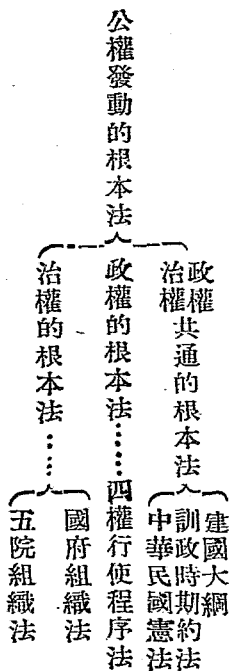 公權發動的根本法
政權治權共通的根本法
建國大綱
訓政時期約法
中華民國憲法
政權的根本法……四權行使程序法
治權的根本法……
國府組織法
五院組織法